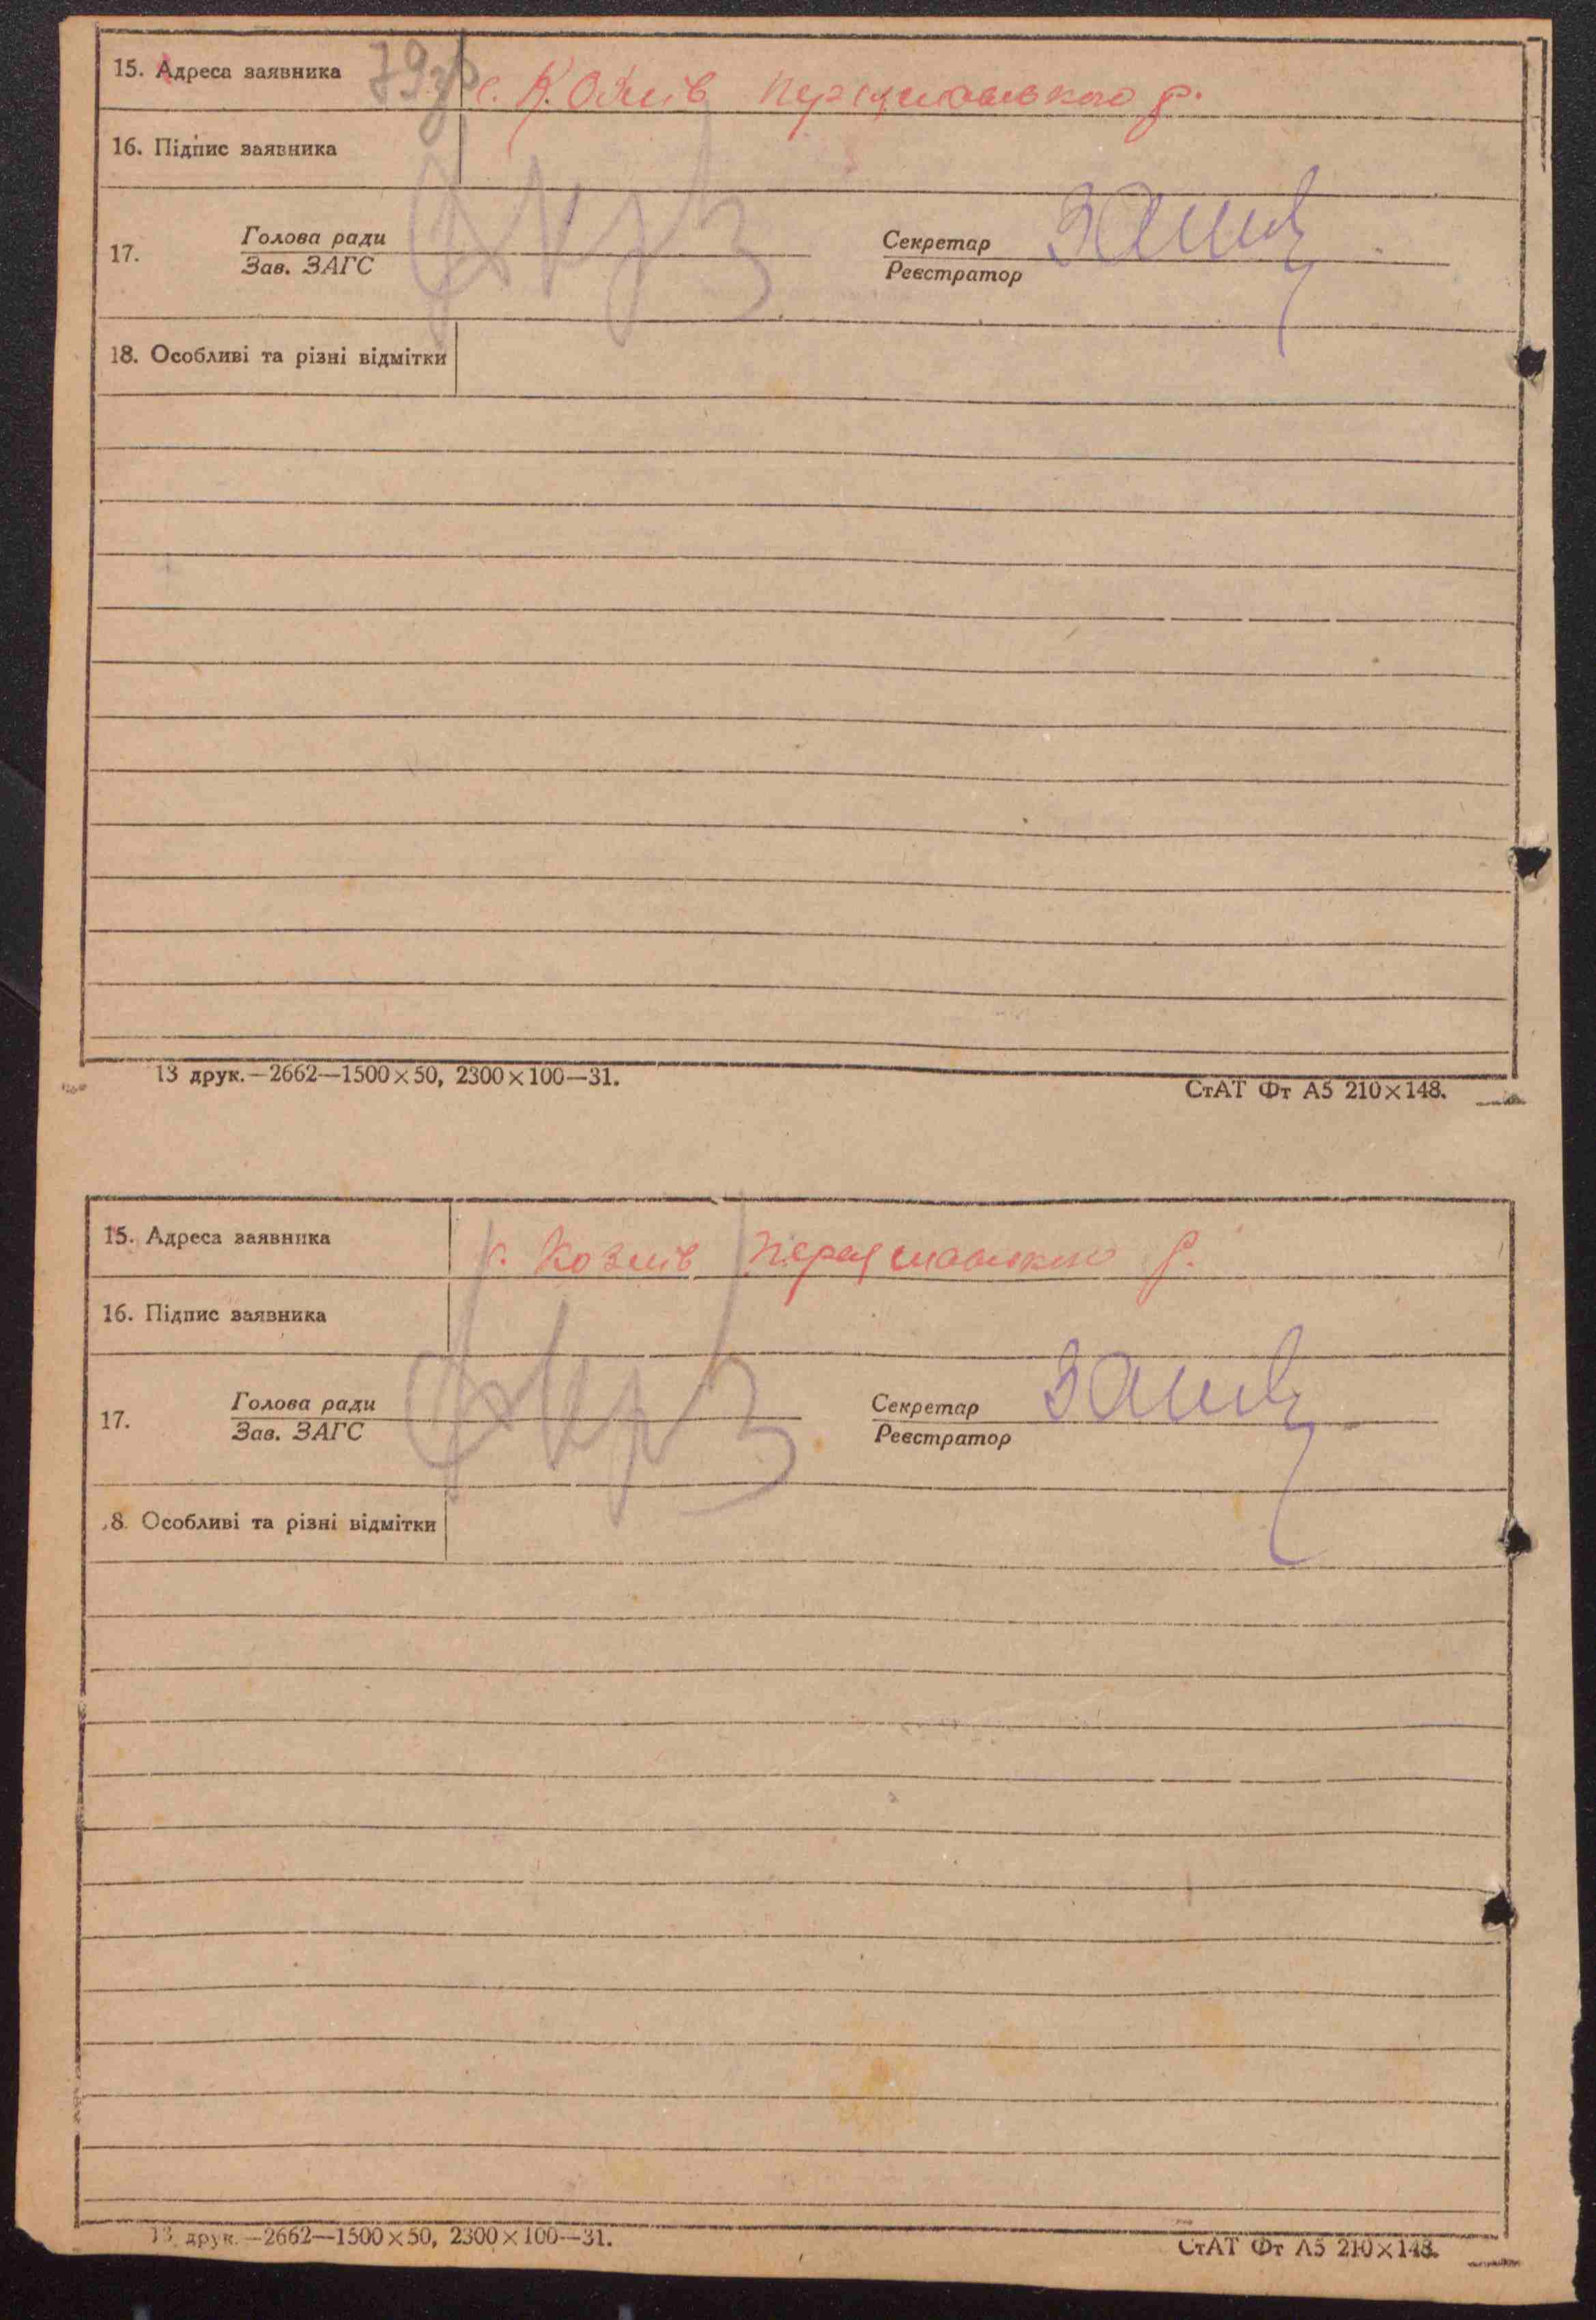 79зв
15. Адреса заявника с. Козлів Переяславського р.
16. Підпис заявника
17. Голова ради Секретар
Зав. ЗАГС Реєстратор
18. Особливі та різні відмітки
13 друк.—2662—1500×50, 2300×100—31. СтАТ Фт А5 210×148.
15. Адреса заявника с. Козлів Переяславського р.
16. Підпис заявника
17. Голова ради Секретар
Зав. ЗАГС Реєстратор
.8. Особливі та різні відмітки
13 друк.—2662—1500×50, 2300×100—31. СтАТ Фт А5 210×148.